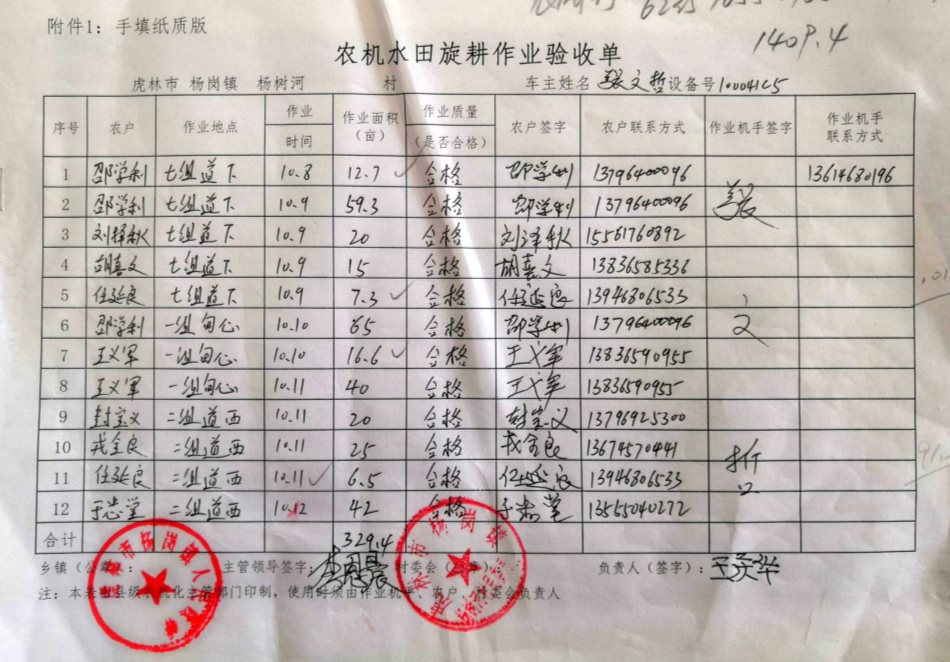 附件1：手填纸质版
1409.4
农机水田旋耕作业验收单
虎林市 杨岗镇 杨树河 村 车主姓名 张文哲 设备号 10004165
序号 农户 作业地点 作业时间 作业面积（亩） 作业质量（是否合格） 农户签字 农户联系方式 作业机手签字 作业机手联系方式
1 邵学利 七组道下 10.8 12.7 合格 邵学利 13796400096 13614680196
2 邵学利 七组道下 10.9 59.3 合格 邵学利 13796400096 张
3 刘择秋 七组道下 10.9 20 合格 刘泽秋 15561760892
4 胡喜文 七组道下 10.9 15 合格 胡喜文 13836585336
5 任延良 七组道下 10.9 7.3 合格 任延良 13946806533
6 邵学利 一组甸心 10.10 65 合格 邵学利 13796400096 文
7 王义军 一组甸心 10.10 16.6 合格 王义军 13836590955
8 王义军 一组甸心 10.11 40 合格 王义军 13836590955
9 封宝义 二组道西 10.11 20 合格 封宝义 13796925300
10 戎全良 二组道西 10.11 25 合格 戎全良 13674570441 哲
11 任延良 二组道西 10.11 6.5 合格 任延良 13946806533
12 于忠堂 二组道西 10.12 42 合格 于忠堂 13555040272
合计 329.4
乡镇（公章）： 主管领导签字： 村委会（公章）： 负责人（签字）：
注：本表由县级农机化主管部门印制，使用时须由作业机手、农户、村委会负责人